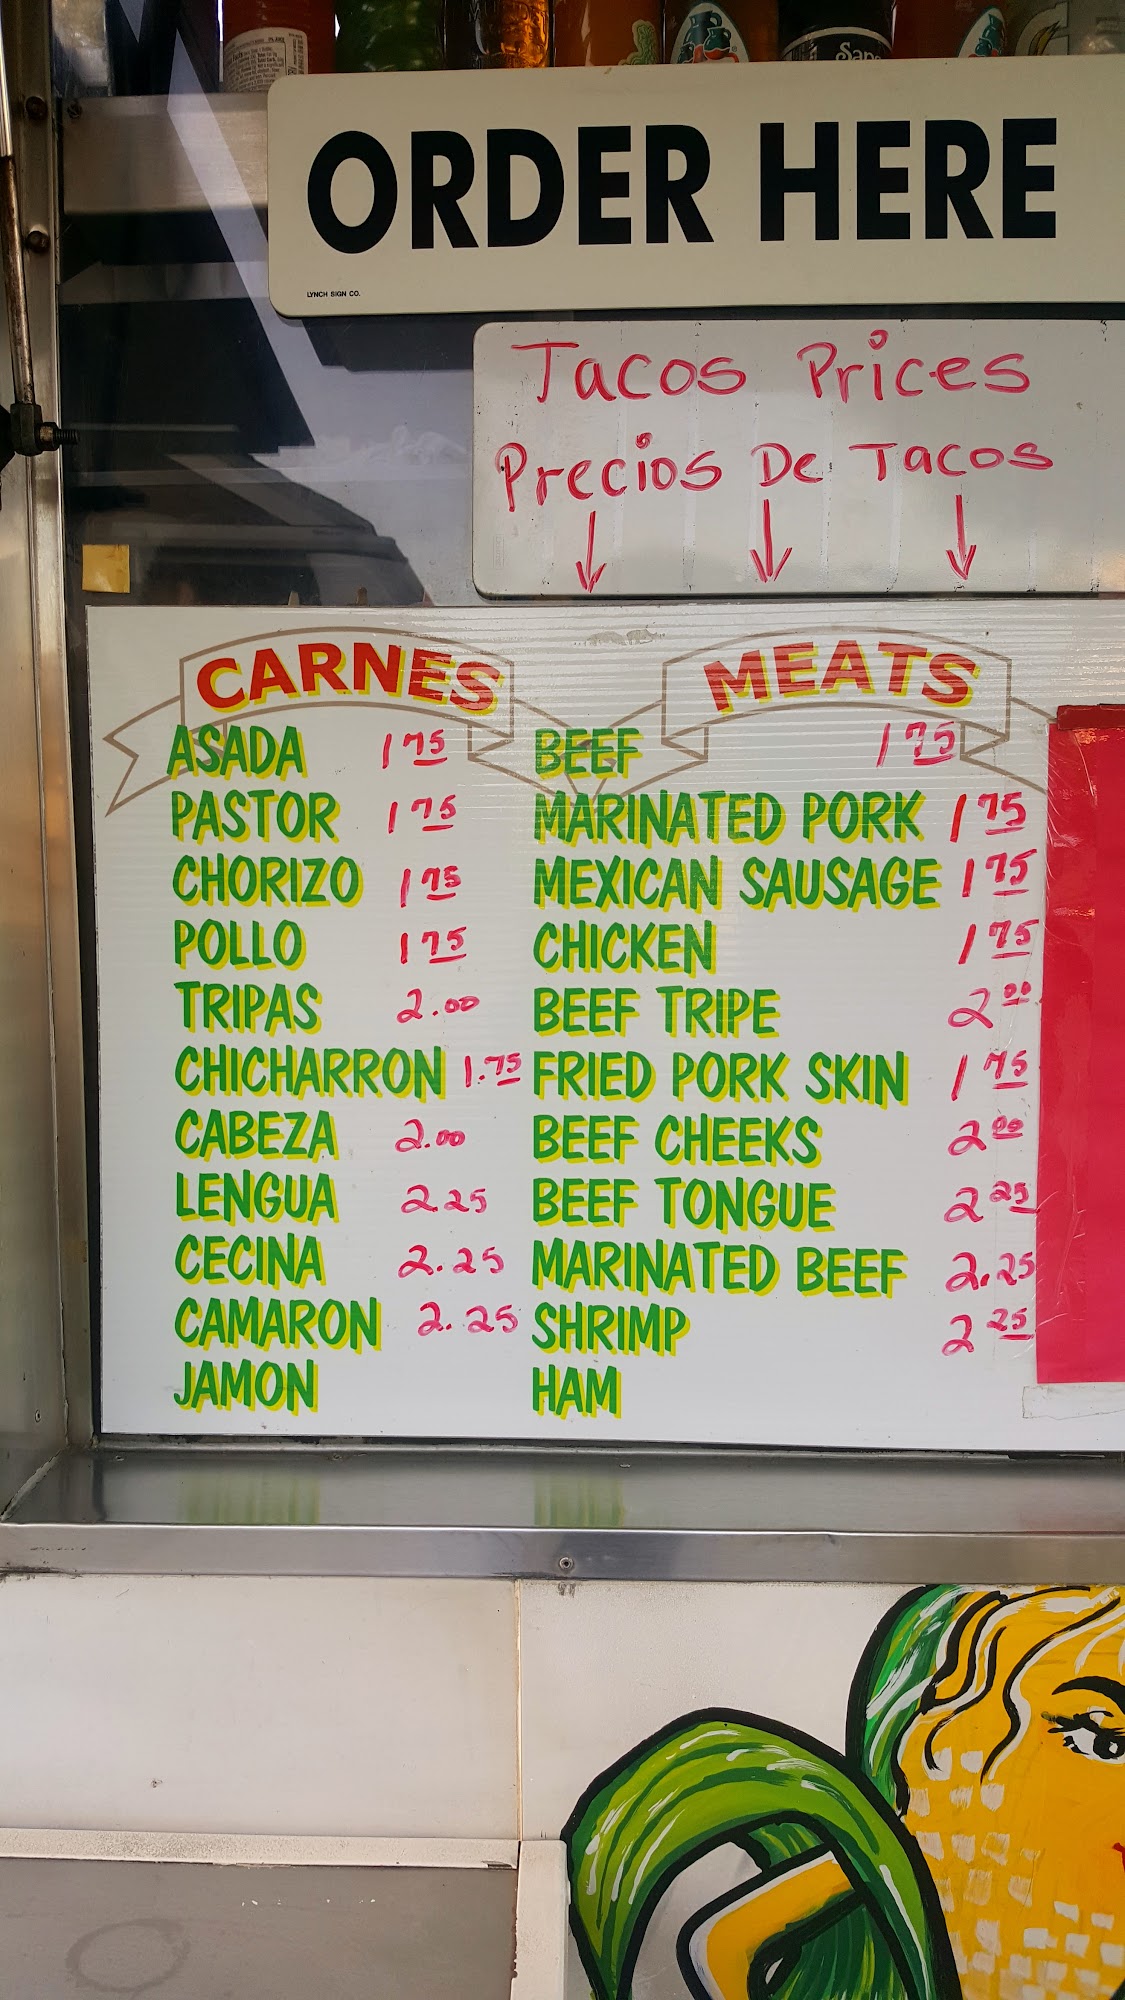 Sans
ORDER HERE
LYNCH SIGN CO.
Tacos Prices
Precios De Tacos
CARNES MEATS
ASADA 1 75 BEEF 1 75
PASTOR 1 75 MARINATED PORK 1 75
CHORIZO 1 75 MEXICAN SAUSAGE 1 75
POLLO 1 75 CHICKEN 1 75
TRIPAS 2.00 BEEF TRIPE 2 00
CHICHARRON 1.75 FRIED PORK SKIN 1 75
CABEZA 2.00 BEEF CHEEKS 2 00
LENGUA 2.25 BEEF TONGUE 2 25
CECINA 2.25 MARINATED BEEF 2.25
CAMARON 2.25 SHRIMP 2 25
JAMON HAM